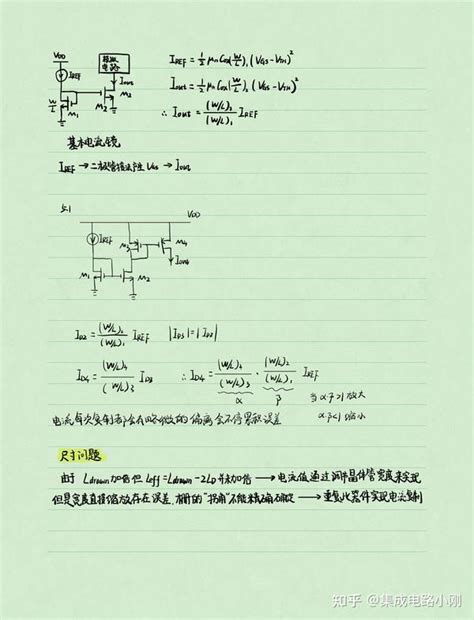 VDD
IREF
模拟
电路
W/L
M1
M2
IREF = ½ μn Cox (W/L)₁ (VGS - VTH)²
Iout = ½ μn Cox (W/L)₂ (VGS - VTH)²
∴ Iout = (W/L)₂/(W/L)₁ IREF
基本电流镜
IREF → 二极管接法产生 VGS → Iout
5.1
VDD
IREF
M3
M4
Iout
M1
M2
ID2 = (W/L)₂/(W/L)₁ IREF |ID3| = |ID2|
ID4 = (W/L)₄/(W/L)₃ ID3 ∴ ID4 = (W/L)₄/(W/L)₃ · (W/L)₂/(W/L)₁ IREF
α β
当 αβ>1 放大
αβ<1 缩小
电流每次复制都会有略微的偏离会不停累积误差
尺寸问题
由于 Ldrawn 加倍但 Leff = Ldrawn - 2LD 并未加倍 → 电流值通过调节晶体管宽度来实现
但是宽度直接缩放存在误差,栅的"拐角"不能精确确定 → 重复此器件实现电流复制
知乎 @集成电路小刚